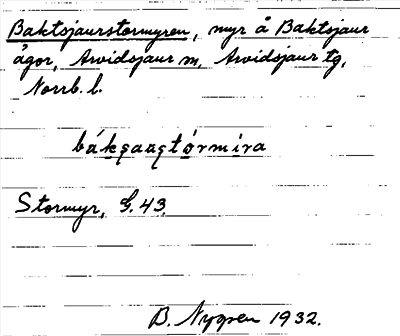 Baktsjaurstormyren, myr å Baktsjaur
ägor, Arvidsjaur sn, Arvidsjaur tg,
Norrb. l.
bákşaʊştórmíra
Stormyr, G. 43.
B. Nygren 1932.